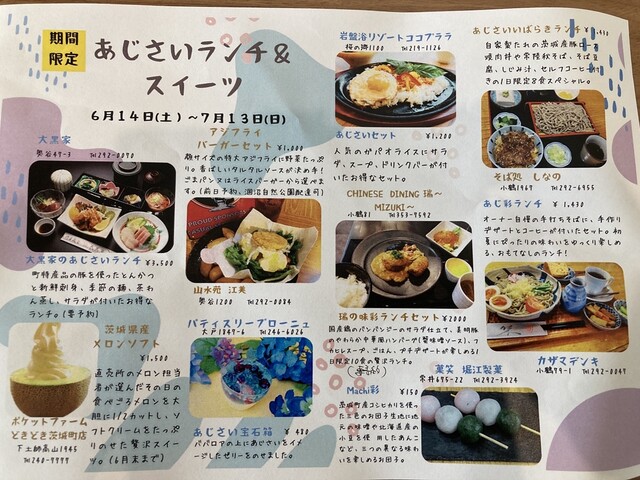 期間
限定
あじさいランチ&
スイーツ
6月14日(土)~7月13日(日)
大黒家
奥谷49-3 TEL292-0090
大黒家のあじさいランチ ¥3,500
町特産品の豚を使ったとんかつ
と新鮮刺身、季節の麺、茶わ
ん蒸し、サラダが付いたお得な
ランチ。(要予約)
アジフライ
バーガーセット ¥1,000
顔サイズの特大アジフライに野菜たっぷ
り。香ばしいタルタルソースが決め手!ご
まパンズはライスバーガーから選べま
す。(前日予約、涸沼自然公園配達可)
山水苑 江美
奥谷1200 TEL292-0084
茨城県産
メロンソフト
¥1,500
直売所のメロン担当
者が選んだその日の
食べごろメロンを大
胆に1/2カットし、ソ
フトクリームをたっぷ
りのせた贅沢スイー
ツ。(6月末まで)
ポケットファーム
どきどき茨城町店
下土師高山1945
TEL240-7777
パティスリーブローニュ
大戸1847-6 TEL246-6026
あじさい宝石箱 ¥480
ババロアの上にあじさいをイメ
ージしたゼリーをのせました。
岩盤浴リゾートココプララ
桜の郷1100 TEL219-1126
あじさいセット ¥1,200
人気のガパオライスにサラ
ダ、スープ、ドリンクバーが付
いたお得なセット。
CHINESE DINING 瑞~
MIZUKI~
小鶴81 TEL353-7592
瑞の味彩りランチセット ¥2000
国産鶏のバンバンジーのサラダ仕立て、美明豚
しやわらか中華風ハンバーグ(蟹味噌ソース)、フ
カヒレスープ、ごはん、プチデザートが楽しめる1
日限定10食の贅沢ランチ。
Machi彩 ¥150
茨城町産コシヒカリを使っ
た三色のお団子生地に地
元の味噌や北海道産の
小豆を使用したあんこ
など、三つの異なる味わ
いを楽しめるお団子。
菓笑 堀江製菓
常井675-22 TEL292-3924
あじさいいばらきランチ
自家製だれの茨城産豚ロース
焼肉丼や常陸秋そば、そば豆
腐、しじみ汁、セルフコーヒー付
きの1日限定8食スペシャル。
そば処 しなの
小鶴1969 TEL292-6955
あじ彩ランチ ¥1,430
オーナー自慢の手打ちそばに、手作り
デザートとコーヒーが付いたセット。初
夏にぴったりの味わいをゆっくり楽しめ
る、おもてなしのランチ!
カザマデンキ
小鶴79-1 TEL292-0049